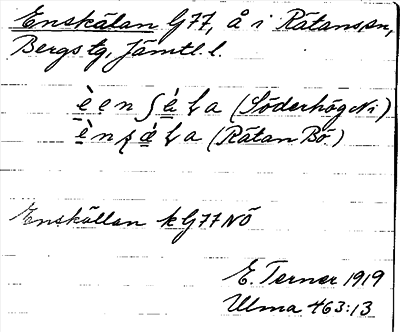 Enskälan G77, å i Rätans sn,
Bergs tg, Jämtl. l.
(Söderhög Ni)
(Rätan Bö.)
Enskällan k G77 NÖ
E. Terner 1919
Ulma 463:13